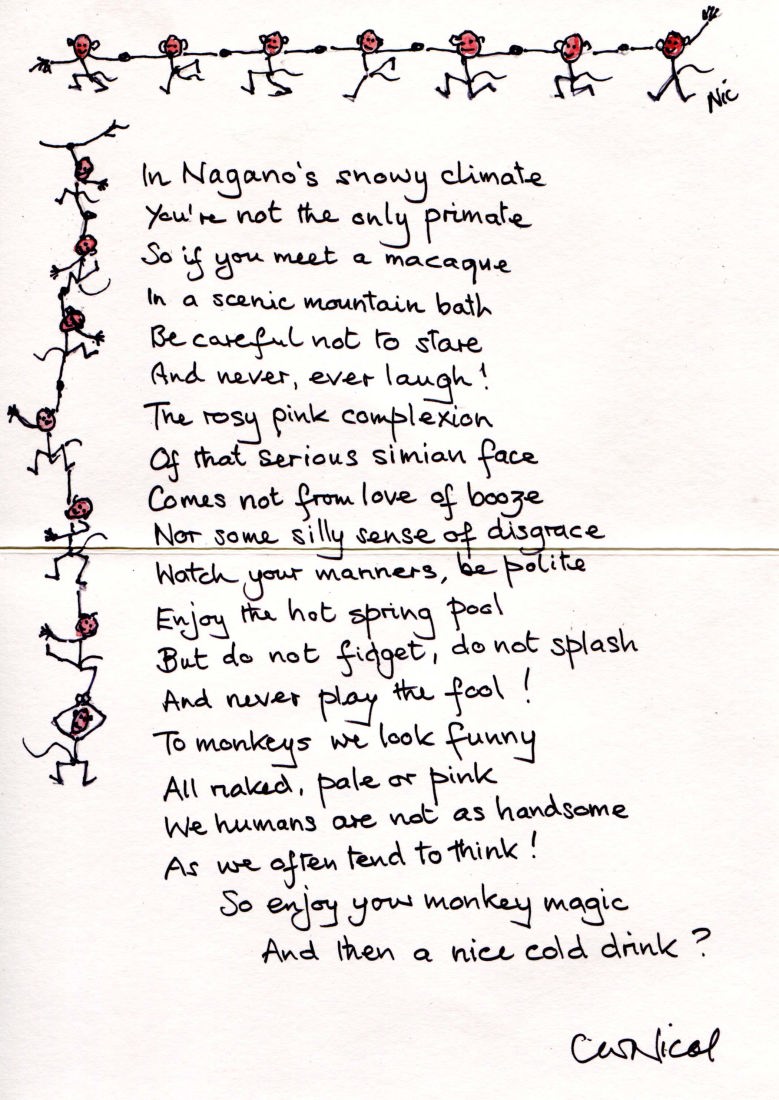 Nic
In Nagano's snowy climate
You're not the only primate
So if you meet a macaque
In a scenic mountain bath
Be careful not to stare
And never, ever laugh!
The rosy pink complexion
Of that serious simian face
Comes not from love of booze
Nor some silly sense of disgrace
Watch your manners, be polite
Enjoy the hot spring pool
But do not fidget, do not splash
And never play the fool!
To monkeys we look funny
All naked, pale or pink
We humans are not as handsome
As we often tend to think!
So enjoy your monkey magic
And then a nice cold drink?
CW Nicol